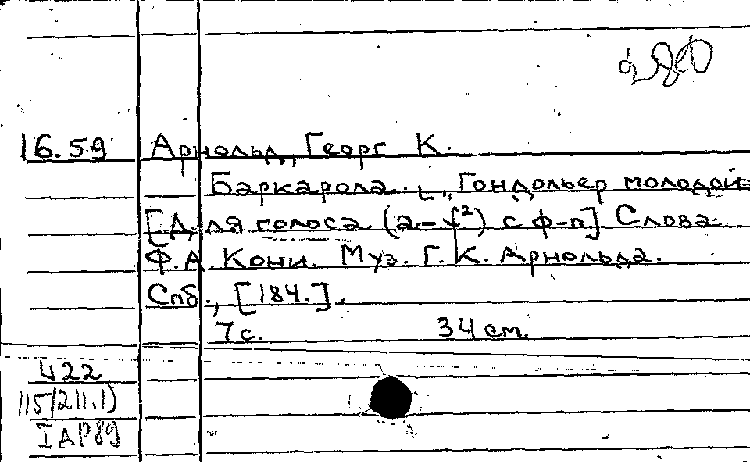 280
16.59 Арнольд, Георг К.
Баркарола. „Гондольер молодой
[Для голоса (a-f²) с ф-п] Слова
Ф.А. Кони. Муз. Г. К. Арнольда.
Спб., [184.].
7 с. 34 см.
422
115/211.1)
IAP89